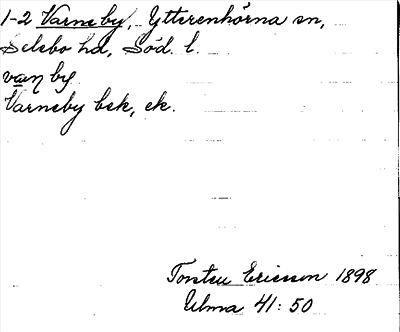 1-2 Varneby, Ytterenhörna sn,
Selebo hd, Söd. l.
vaṇ by.
Varneby bsk, ek.
Torsten Ericsson 1898
Ulma 41:50